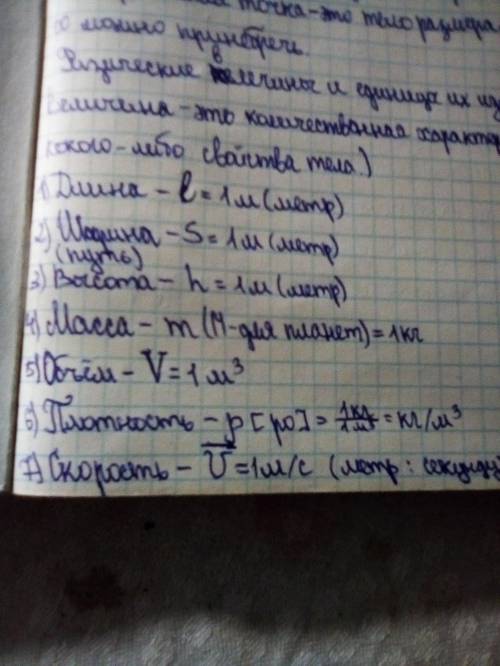 точка-это тело размера
можно пренебречь.
Физические величины и единицы их из
Величина - это количественная характер
какого-либо свойства тела.)
1) Длина - l = 1м (метр)
2) Ширина - S = 1м (метр)
(путь)
3) Высота - h = 1м (метр)
4) Масса - m (M-для планет) = 1кг
5) Объём - V = 1 м³
6) Плотность - p [ро] = 1кг/1м³ = кг/м³
7) Скорость - V⃗ = 1м/с (метр : секунду)